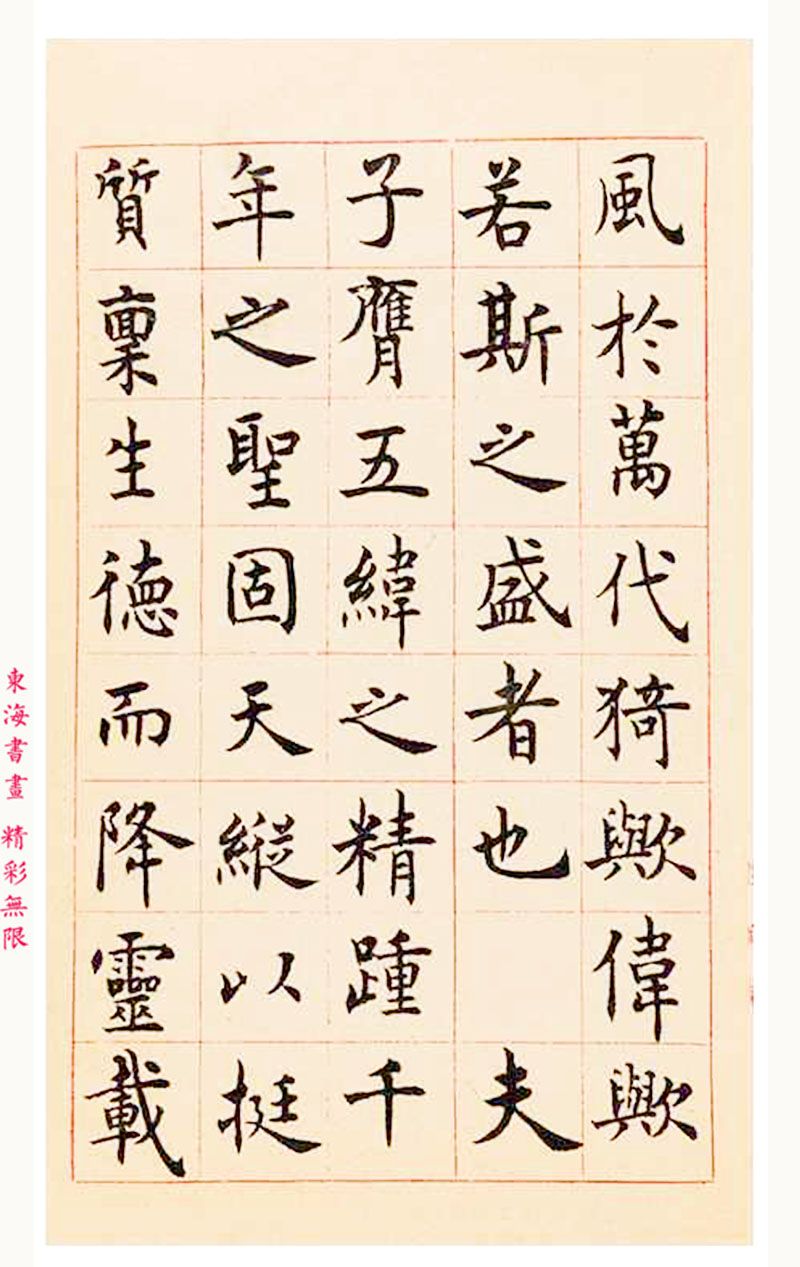 風於萬代猗歟偉歟
若斯之盛者也 夫
子膺五緯之精踵千
年之聖固天縱以挺
質稟生德而降靈載
東海書畫 精彩無限